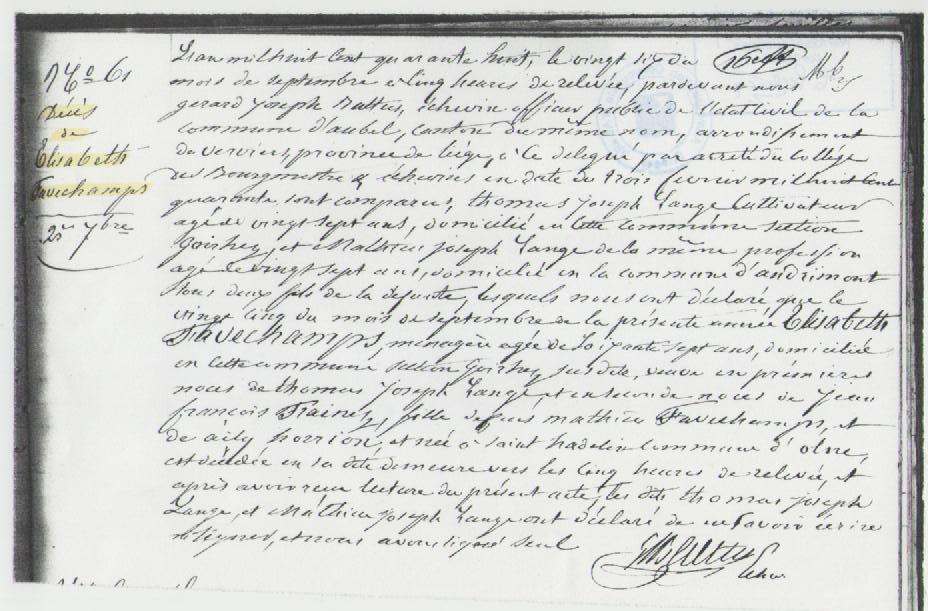 N.o 61
Décès
de
Elisabeth
Favechamps
25 7bre
L'an mil huit cent quarante huit, le vingt six du
mois de septembre à cinq heures de relevée, pardevant nous
gerard Joseph échevin officier public de l'état civil de la
commune d'aubel, canton du même nom, arrondissement
de verviers, province de liége, à ce delegué par arrêté du collége
des Bourgmestre & échevins en date du trois fevrier mil huit cent
quarante, sont comparus, thomas joseph Lange cultivateur
agé de vingt sept ans, domicilié en cette commune section
Gorhez, et Mathieu joseph Lange de la même profession
agé de vingt sept ans, domicilié en la commune d'andrimont
tous deux fils de la defunte, lesquels nous ont déclaré que le
vingt cinq du mois de septembre de la présente année Elisabeth
Favechamps, menagère agée de soixante sept ans, domiciliée
en cette commune section Gorhez, susdite, veuve en premières
noces de thomas Joseph Lange et en seconde noces de Jean
françois, fille de feus mathieu Favechamps, et
de horrion, et née à Saint hadelin commune d'olne,
est décédée en sa dite demeure vers les cinq heures de relevée, et
après avoir reçu lecture du présent acte, les dits thomas joseph
Lange, et Mathieu joseph Lange ont déclaré de ne savoir écrire
ni signer, et nous avons signé seul